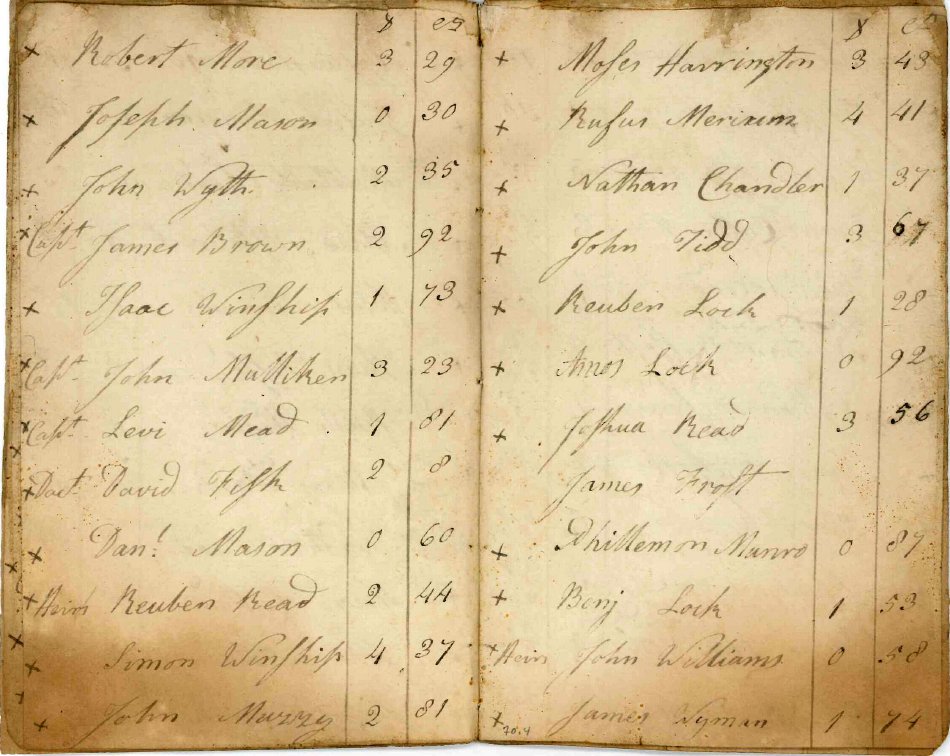 $ cs
x Robert More 3 29
x Joseph Mason 0 30
x John Wyth 2 35
x Capt. James Brown 2 92
x Isaac Winship 1 73
x Capt. John Mulliken 3 23
x Capt. Levi Mead 1 81
x Doct. David Fisk 2 8
x Danl. Mason 0 60
x Heirs Reuben Read 2 44
x Simon Winship 4 37
x John Muzzy 2 81
$ cs
x Moses Harrington 3 43
x Rufus Meriam 4 41
x Nathan Chandler 1 37
x John Tidd 3 67
x Reuben Lock 1 28
x Amos Lock 0 92
x Joshua Read 3 56
James Frost
x Phillemon Munro 0 87
x Benj Lock 1 53
x Heirs John Williams 0 58
x James Wyman 1 74
70.4